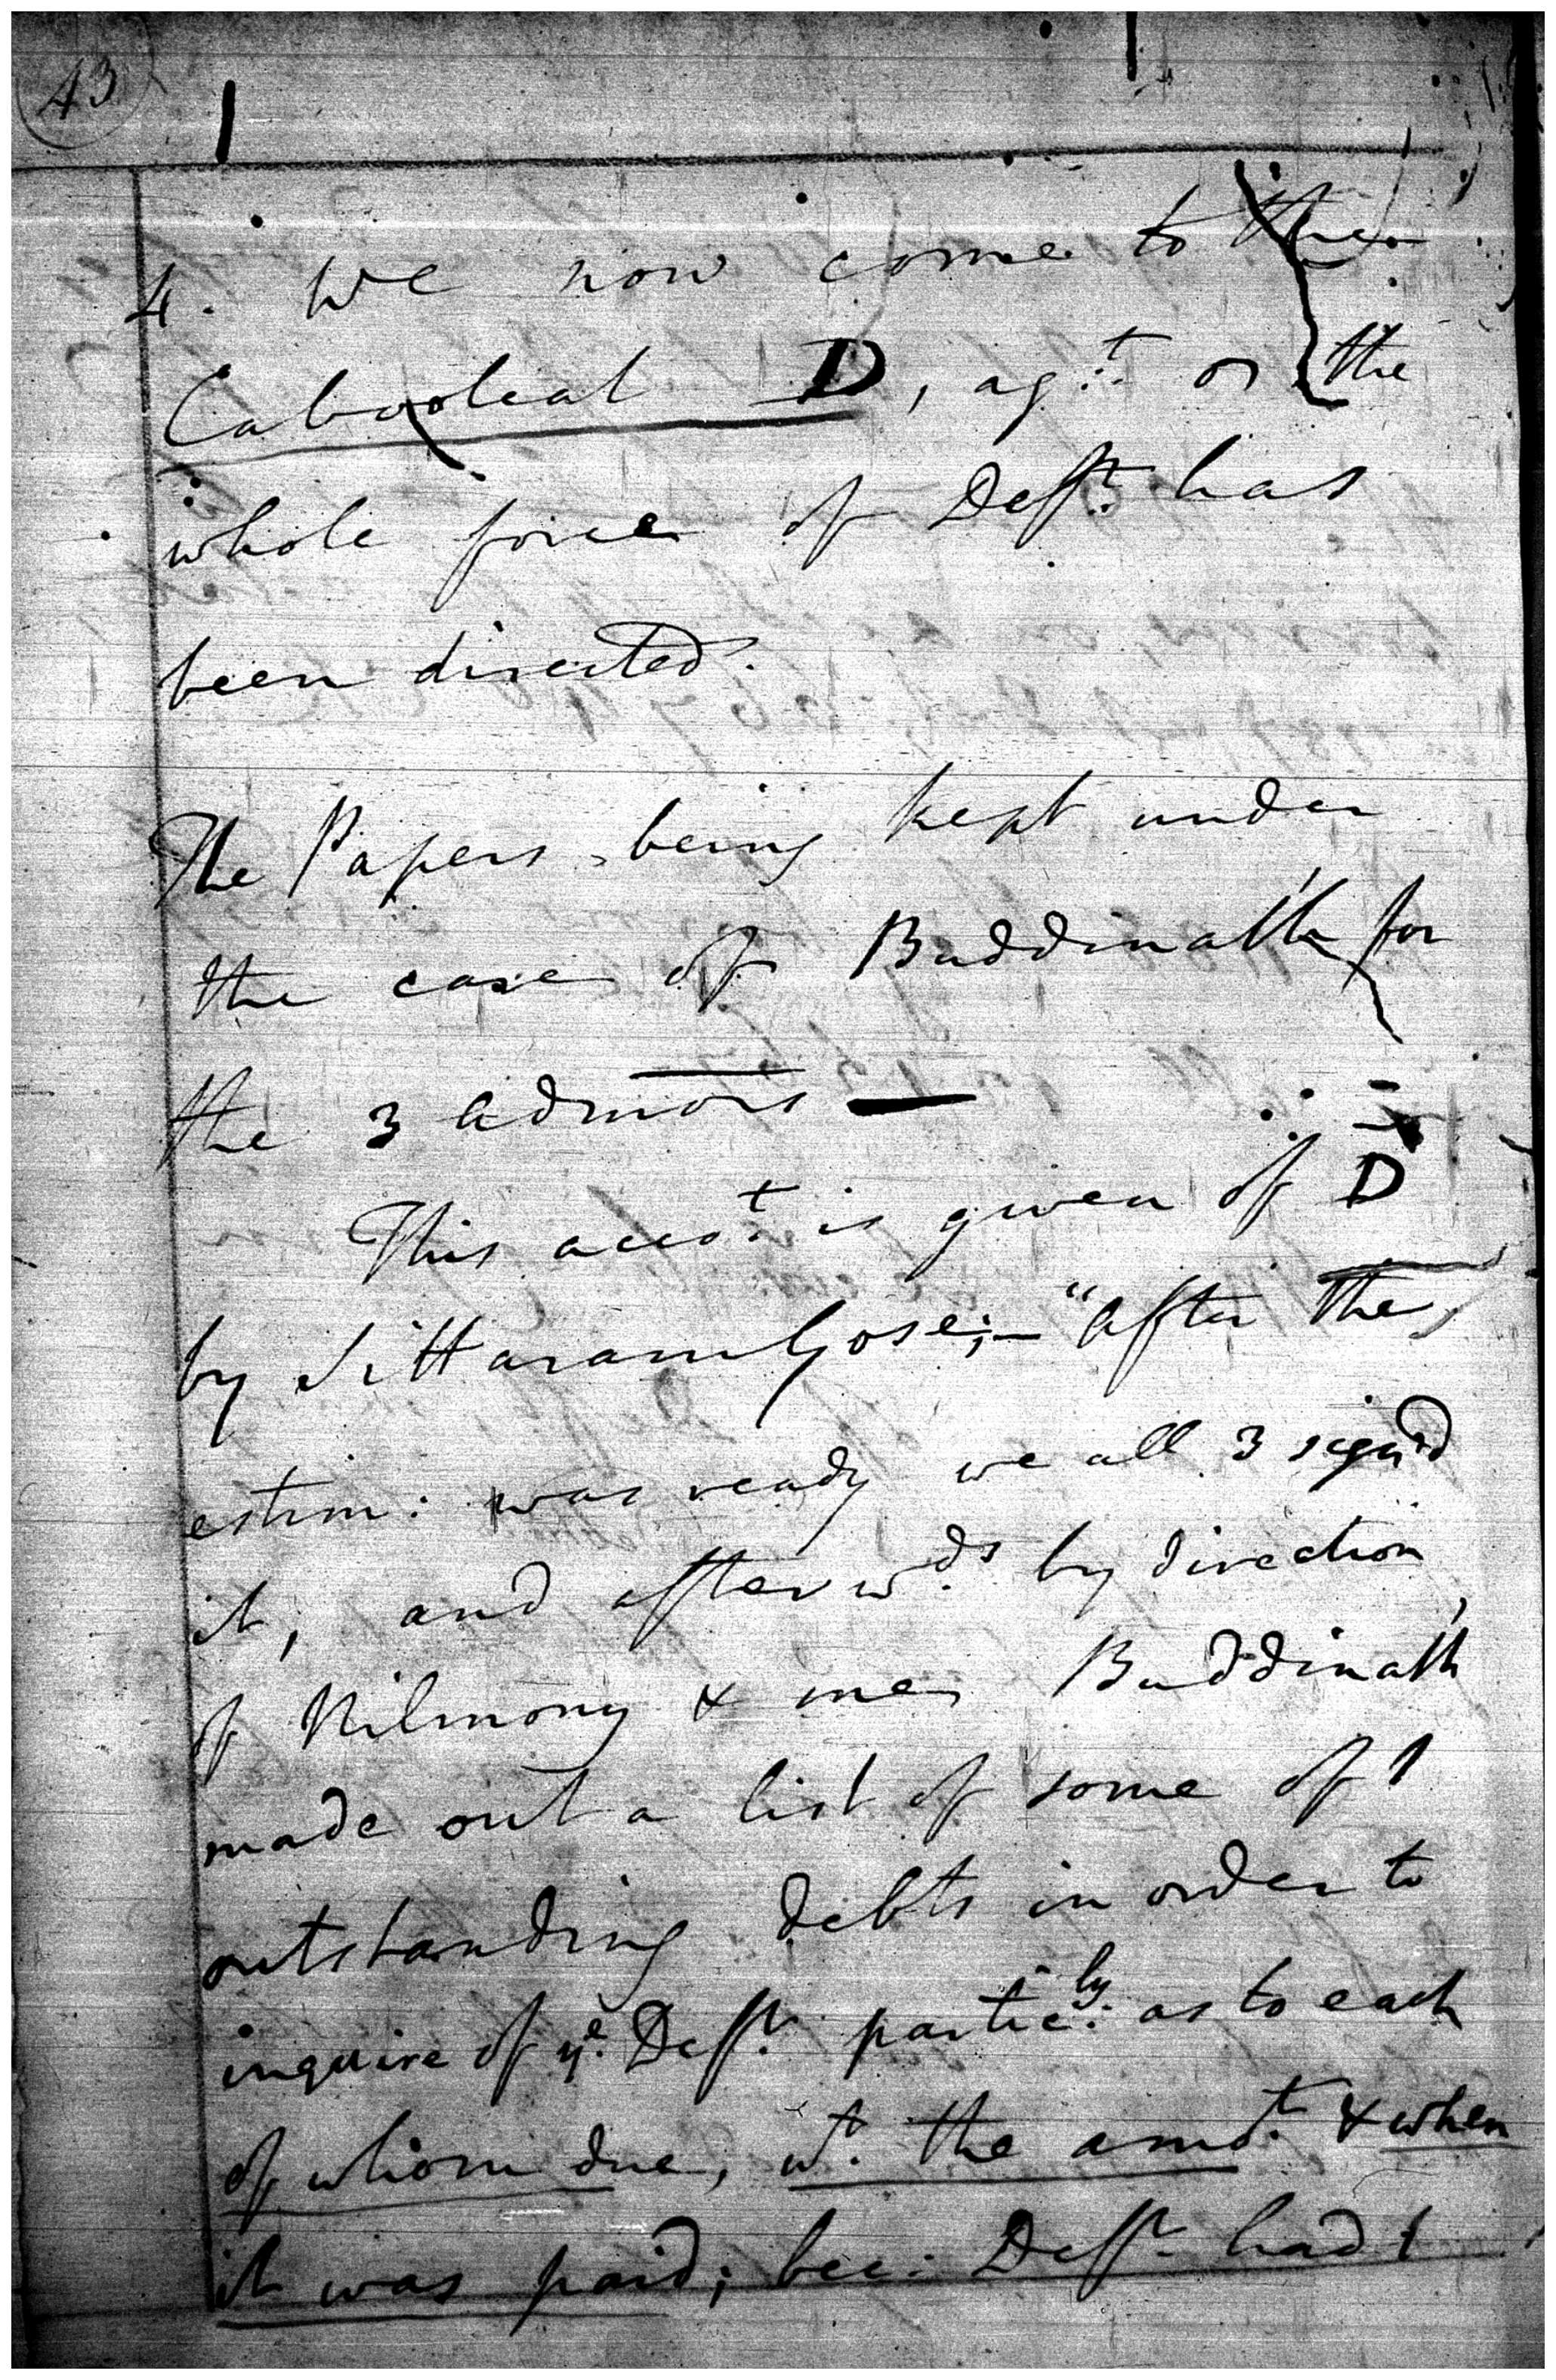 43
4. We now come to the
Cabooleat D, agt. or the
whole force of Deft. has
been directed.
The Papers being kept under
the care of Buddinath for
the 3 admors —
This accot. is given of D
by Sittaram Gose; — "After the
estim: was ready we all 3 signd
it, and afterwds. by direction
of Nilmony & me, Buddinath
made out a list of some of
outstanding debts in order to
inquire of ye. Deft. particly. as to each
of whom due, wt. the amot. & when
it was paid; bec: Deft. had